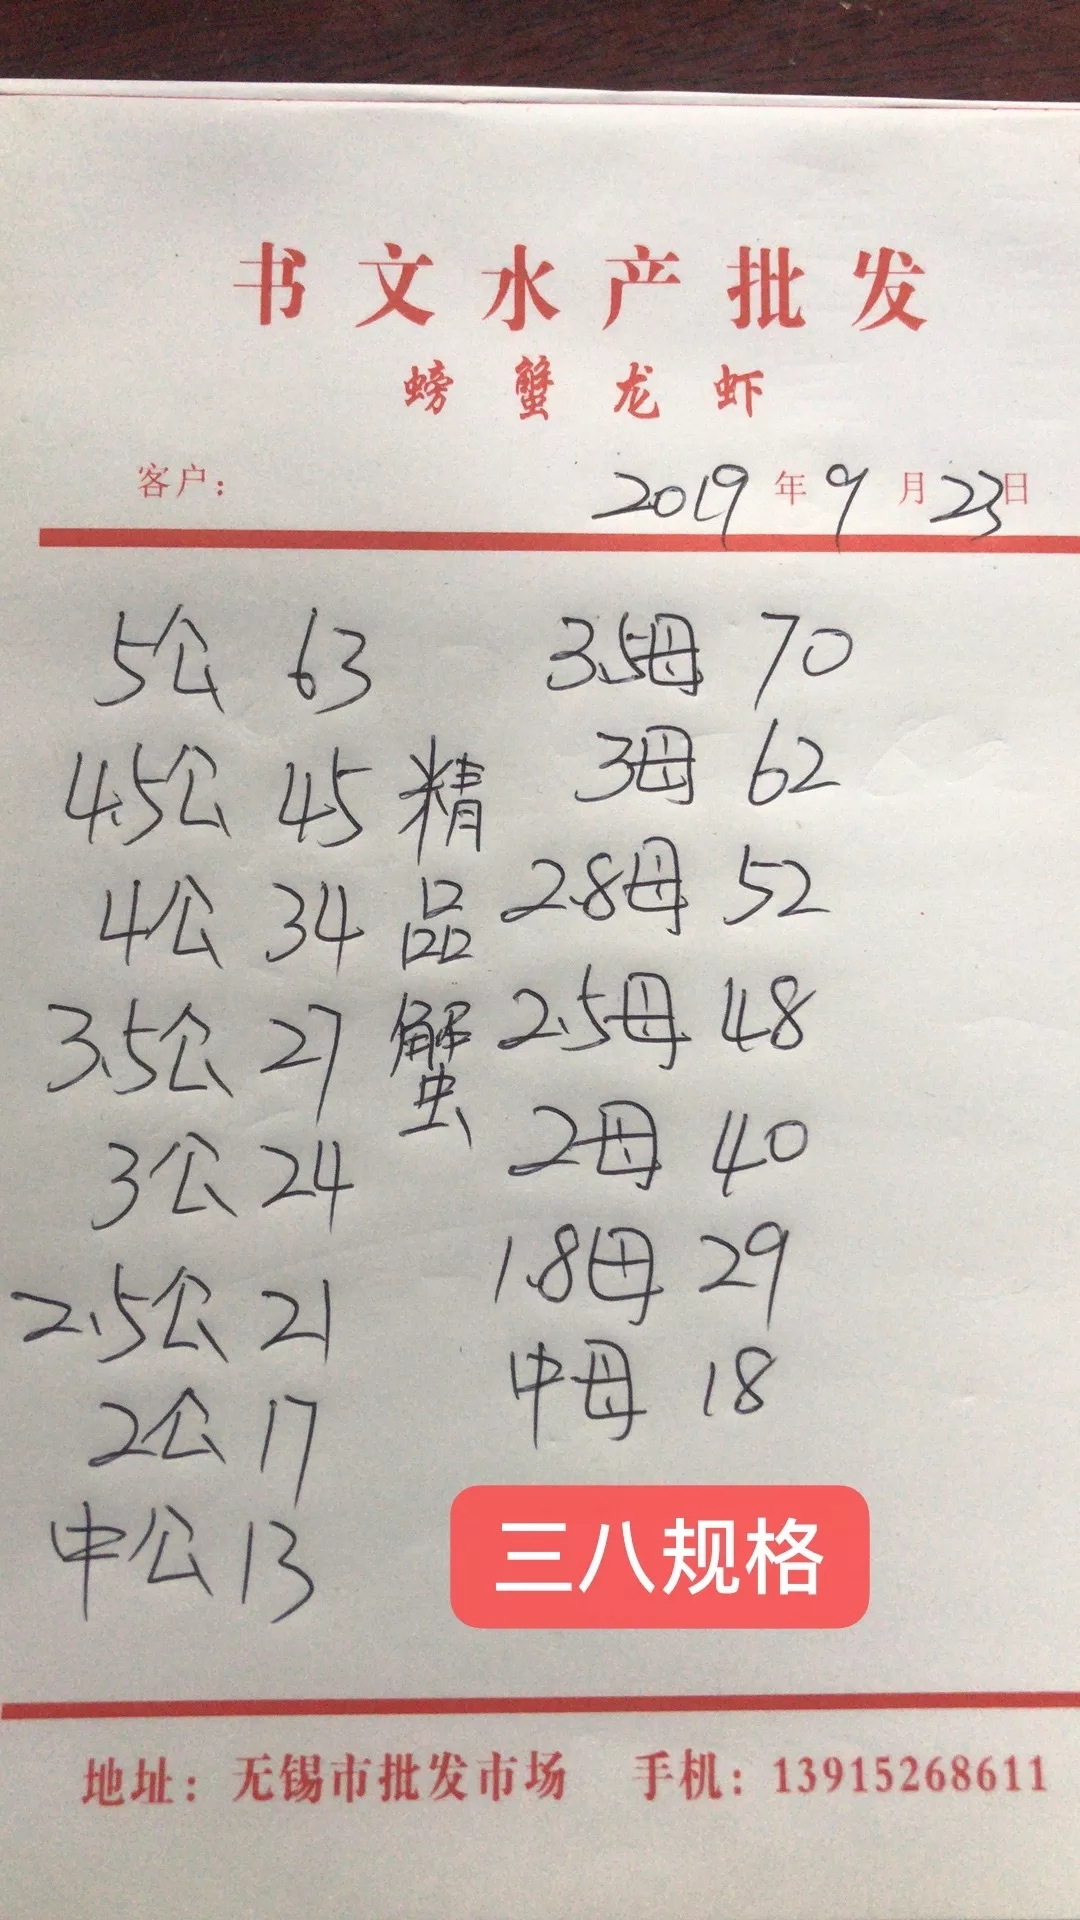 书文水产批发
螃蟹龙虾
客户：
2019年9月23日
5公 63
4.5公 45
4公 34
3.5公 27
3公 24
2.5公 21
2公 17
中公 13
精品蟹
3.5母 70
3母 62
2.8母 52
2.5母 48
2母 40
1.8母 29
中母 18
三八规格
地址：无锡市批发市场 手机：13915268611